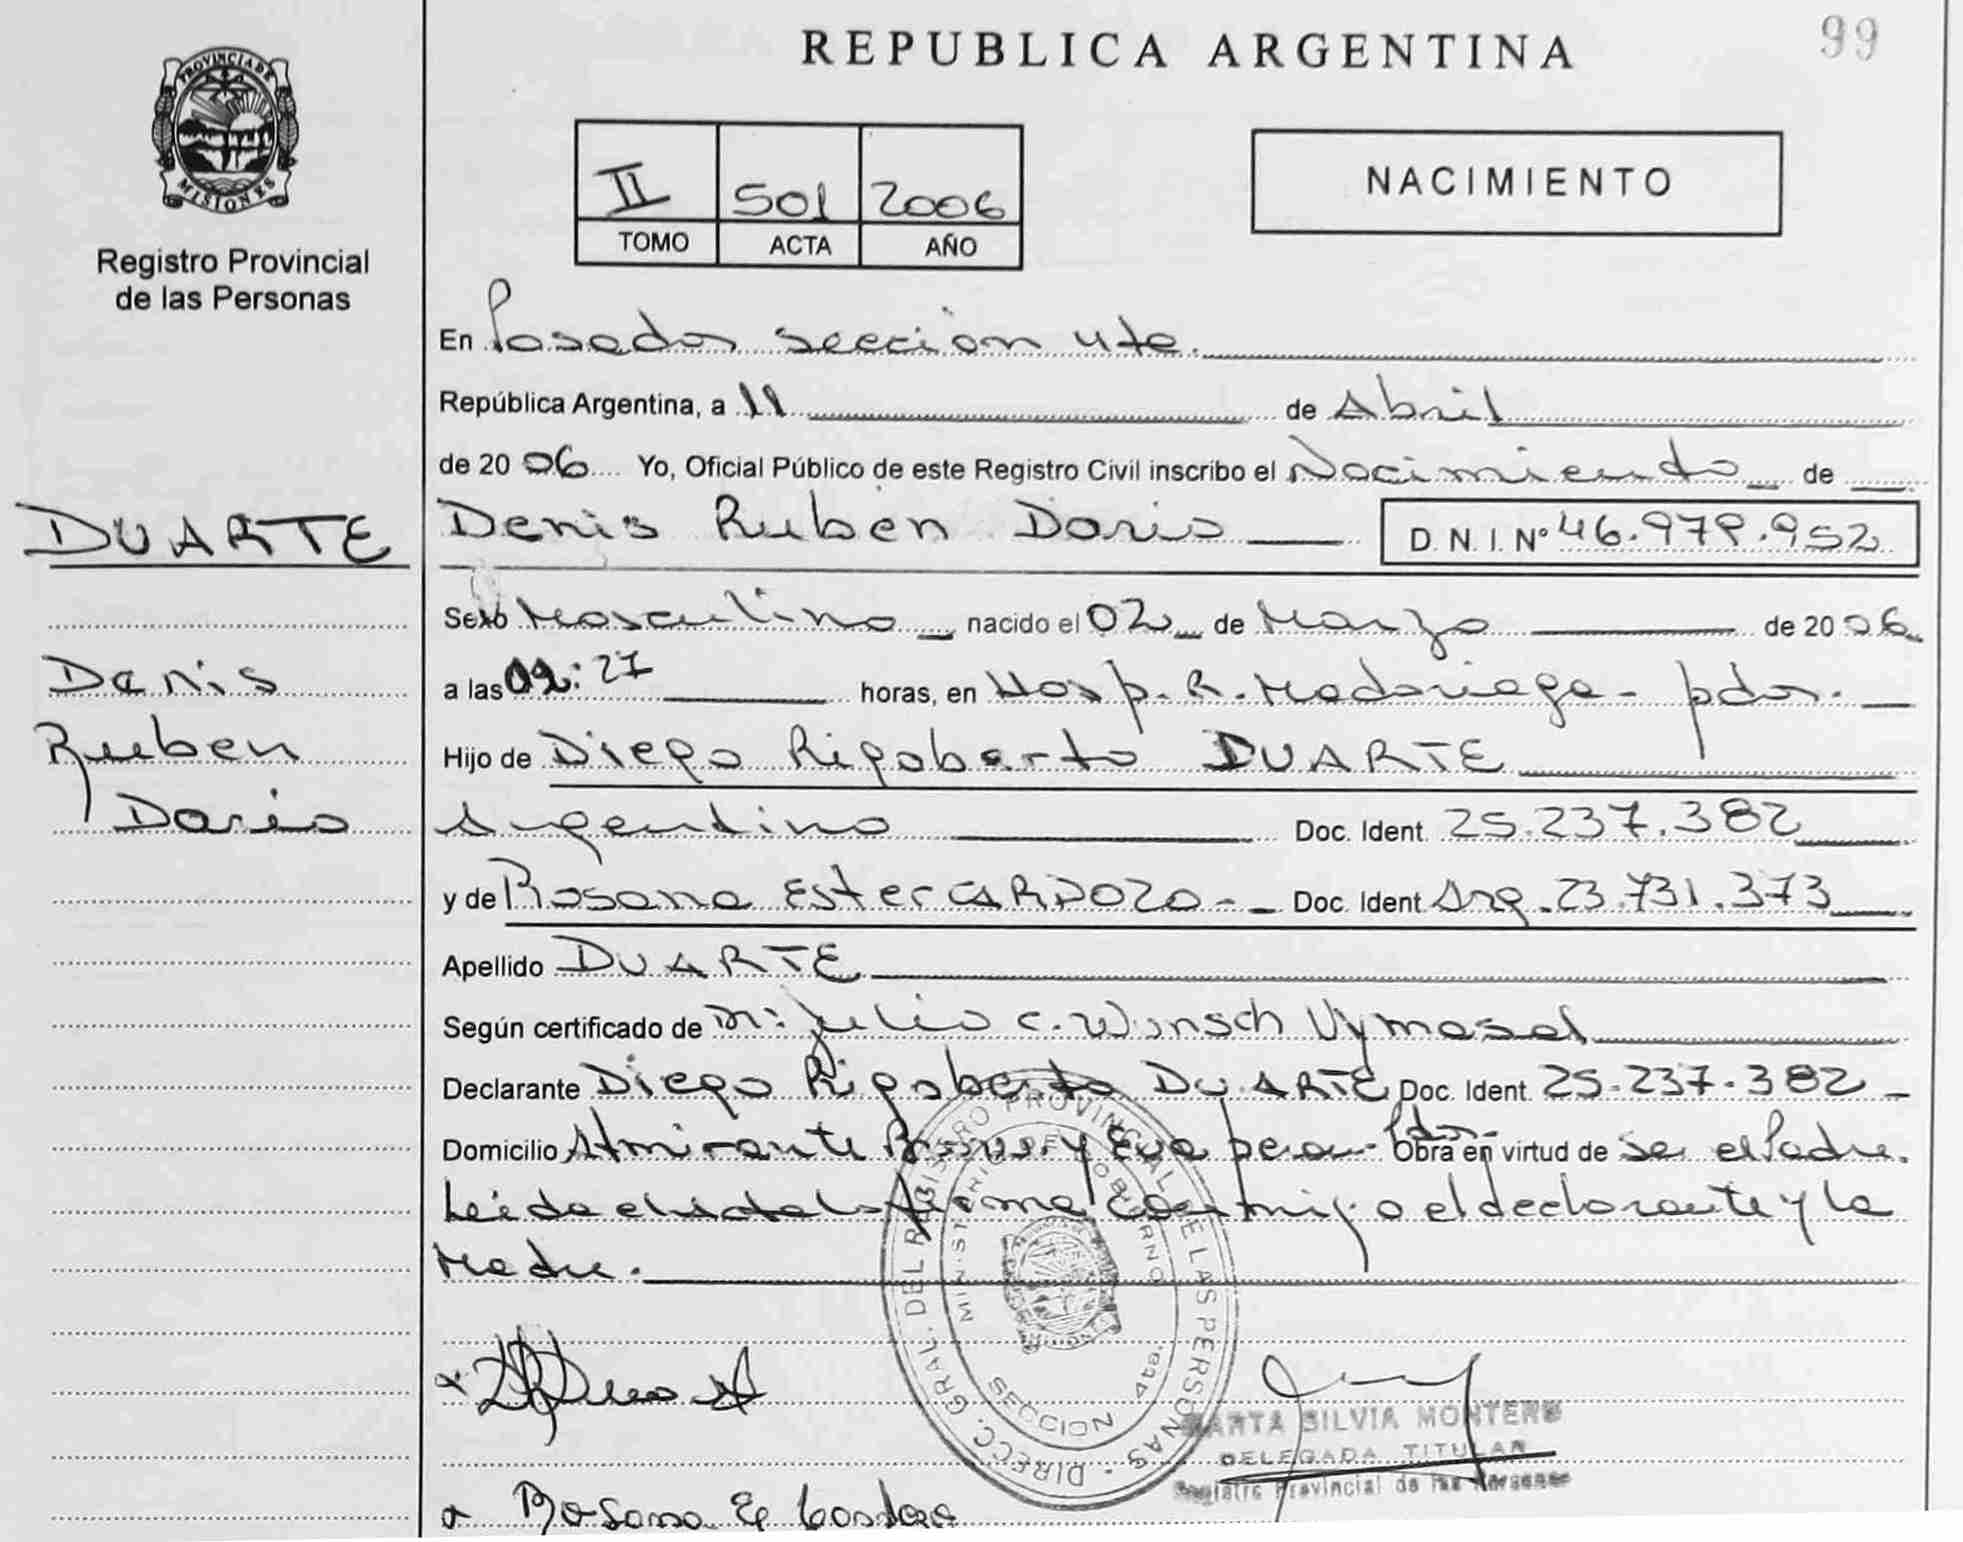 REPUBLICA ARGENTINA
99
PROVINCIA DE
MISIONES
Registro Provincial
de las Personas
II 501 2006
TOMO ACTA AÑO
NACIMIENTO
En Posadas sección 4ta.
República Argentina, a 11 de Abril
de 2006 Yo, Oficial Público de este Registro Civil inscribo el Nacimiento de
DUARTE
Denis Ruben Dario D.N.I. Nº 46.979.952
Sexo Masculino nacido el 02 de Marzo de 2006
Denis
a las 09:27 horas, en Hosp. R. Madariaga - pdas.
Ruben
Hijo de Diego Rigoberto DUARTE
Dario
Argentino Doc. Ident. 25.237.382
y de Rosana Ester CARDOZO - Doc. Ident. Arg. 23.731.373
Apellido DUARTE
Según certificado de Julio C. Wunsch Vymasal
Declarante Diego Rigoberto DUARTE Doc. Ident. 25.237.382 -
Domicilio Almirante Brown y Eva peron - Pdas. Obra en virtud de ser el Padre.
Leida el acta la firma conmigo el declarante y la
Madre.
DIRECC. GRAL. DEL REGISTRO PROVINCIAL DE LAS PERSONAS
MINISTERIO DE GOBIERNO
SECCION 4ta.
MARTA SILVIA MONTERO
DELEGADA TITULAR
Registro Provincial de las Personas
Rosana E Cardozo